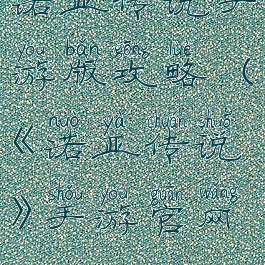 诺亚传说手
yóu bǎn gōng lüè
游版攻略（
nuò yà chuán shuō
《诺亚传说
shǒu yóu guān wǎng
》手游官网